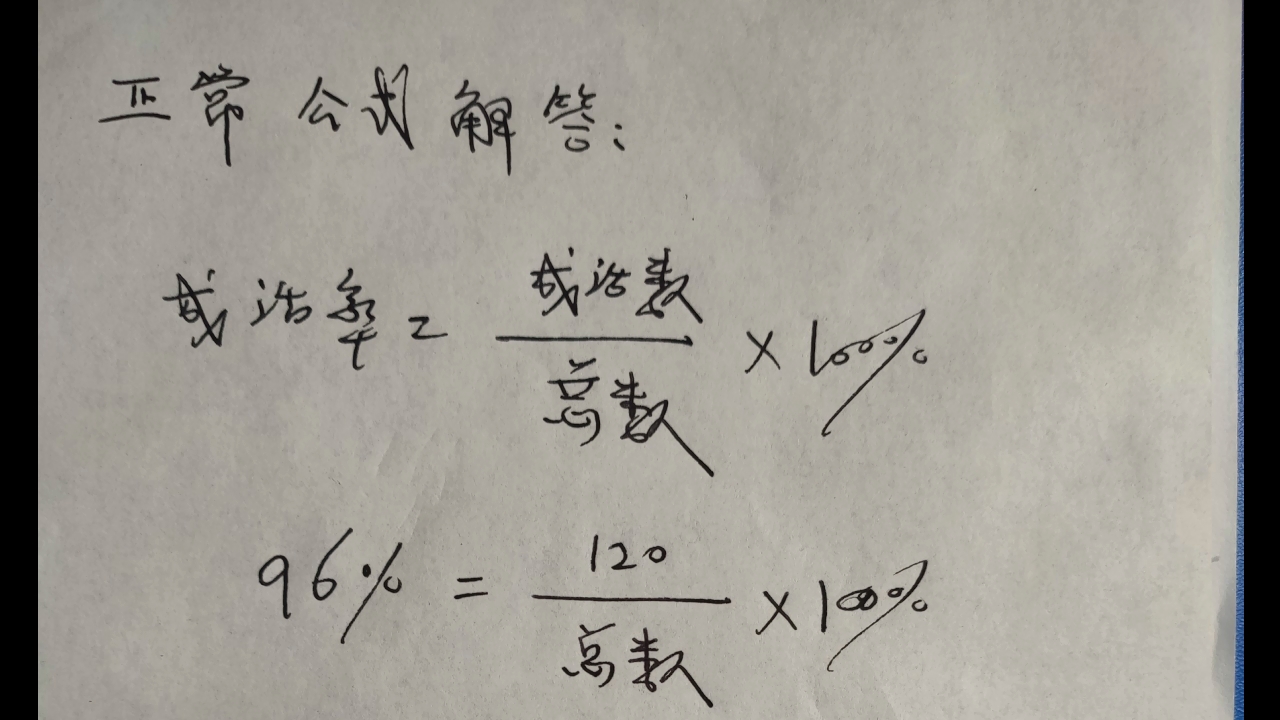 正常公式解答:
成活率=成活数/总数×100%
96%=120/总数×100%